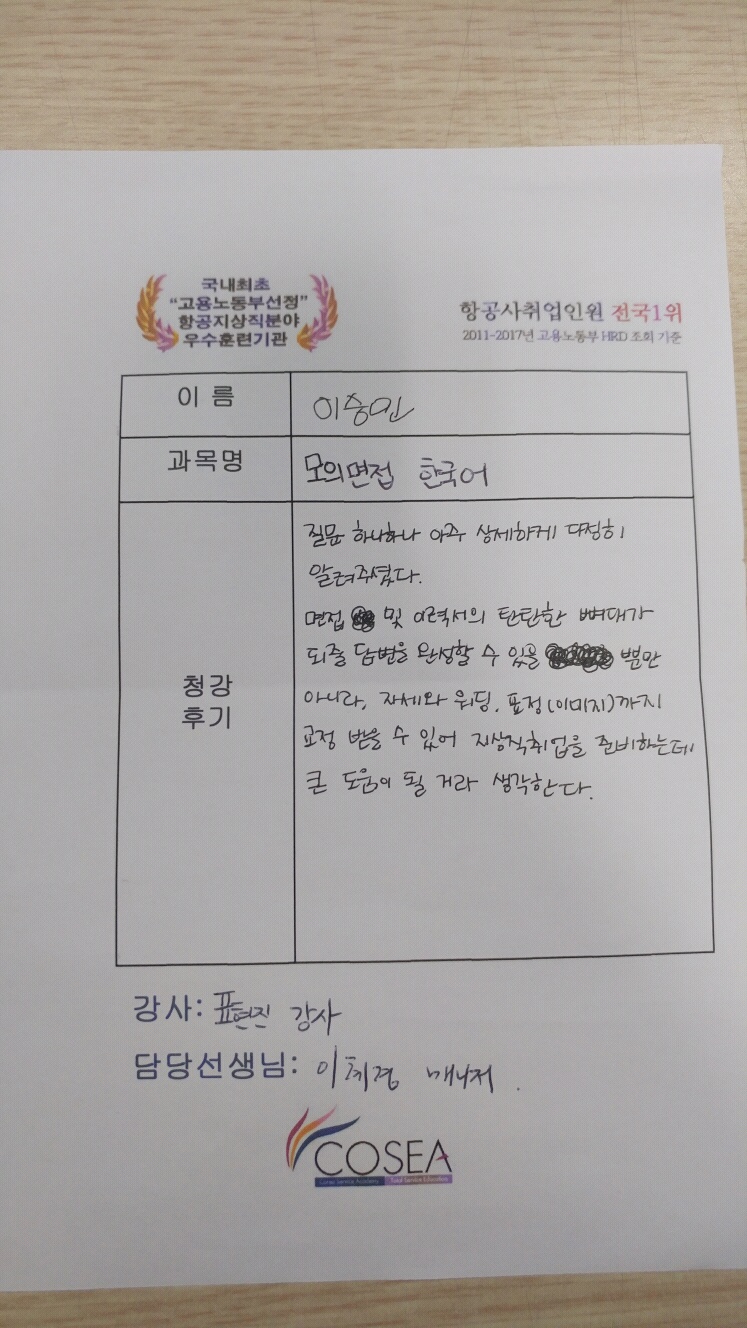 국내최초
"고용노동부선정"
항공지상직분야
우수훈련기관
항공사취업인원 전국1위
2011-2017년 고용노동부 HRD 조회 기준
이 름
이승민
과목명
모의면접 한국어
청강
후기
질문 하나하나 아주 상세하게 다정히
알려주셨다.
면접 및 이력서의 탄탄한 뼈대가
되줄 답변을 완성할 수 있을 뿐만
아니라, 자세와 워딩, 표정(이미지)까지
교정 받을 수 있어 지상직취업을 준비하는데
큰 도움이 될 거라 생각한다.
강사: 표현진 강사
담당선생님: 이혜경 매니저.
COSEA
Korea Service Academy Total Service Education